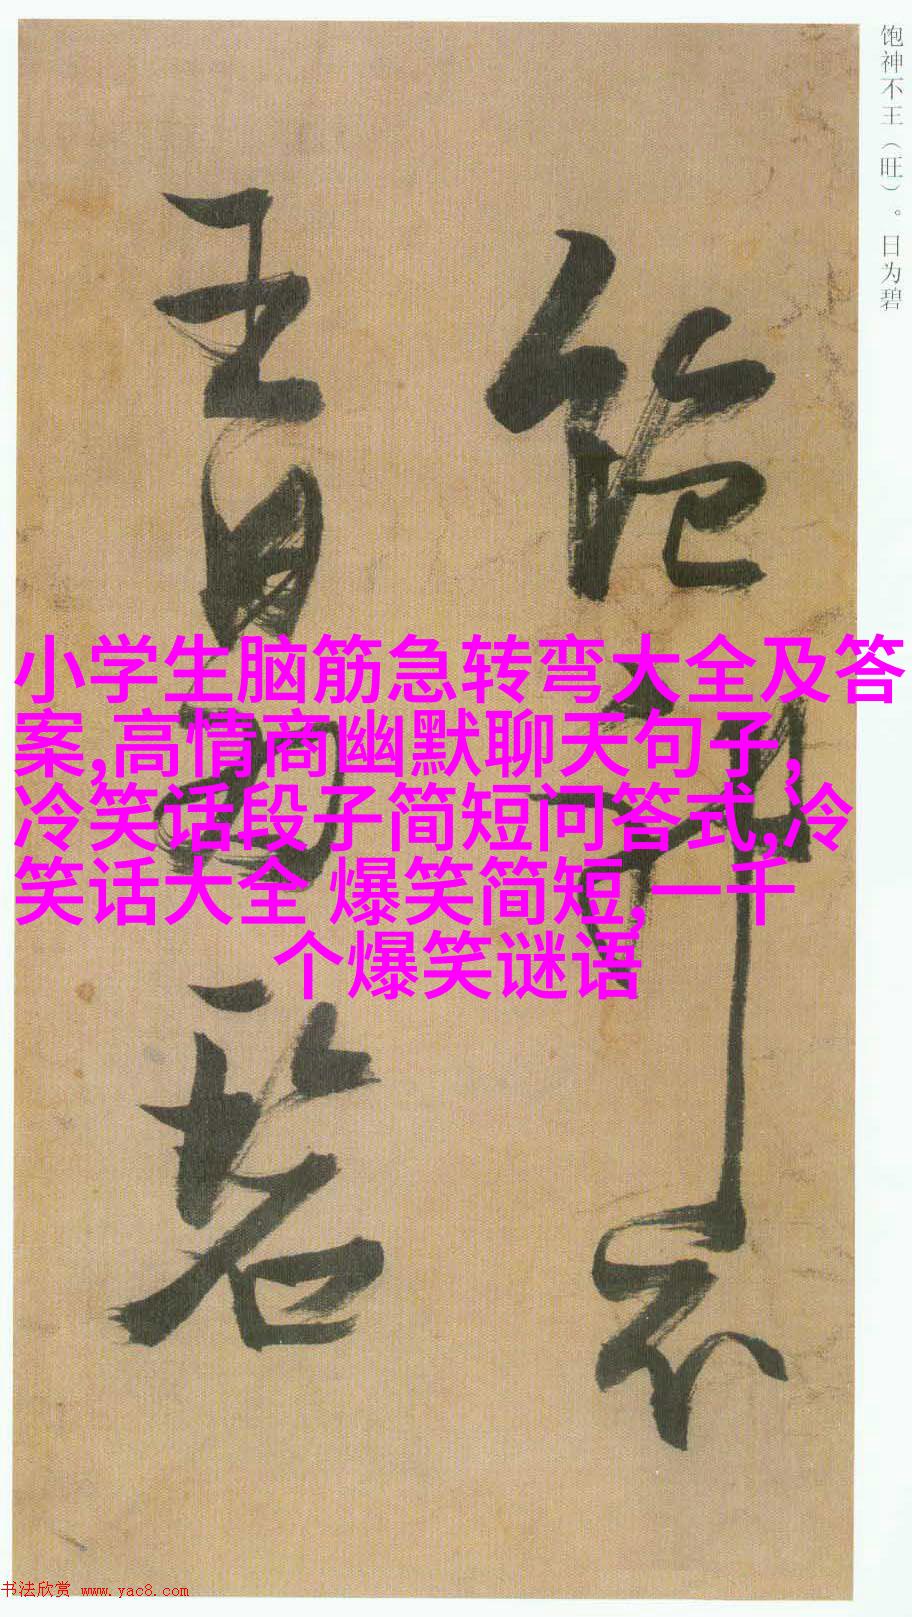 饱神不王（旺）。日为碧
饱神不
王日为碧
小学生脑筋急转弯大全及答
案,高情商幽默聊天句子,
冷笑话段子简短问答式,冷
笑话大全 爆笑简短,一千
个爆笑谜语
书法欣赏 www.yac8.com